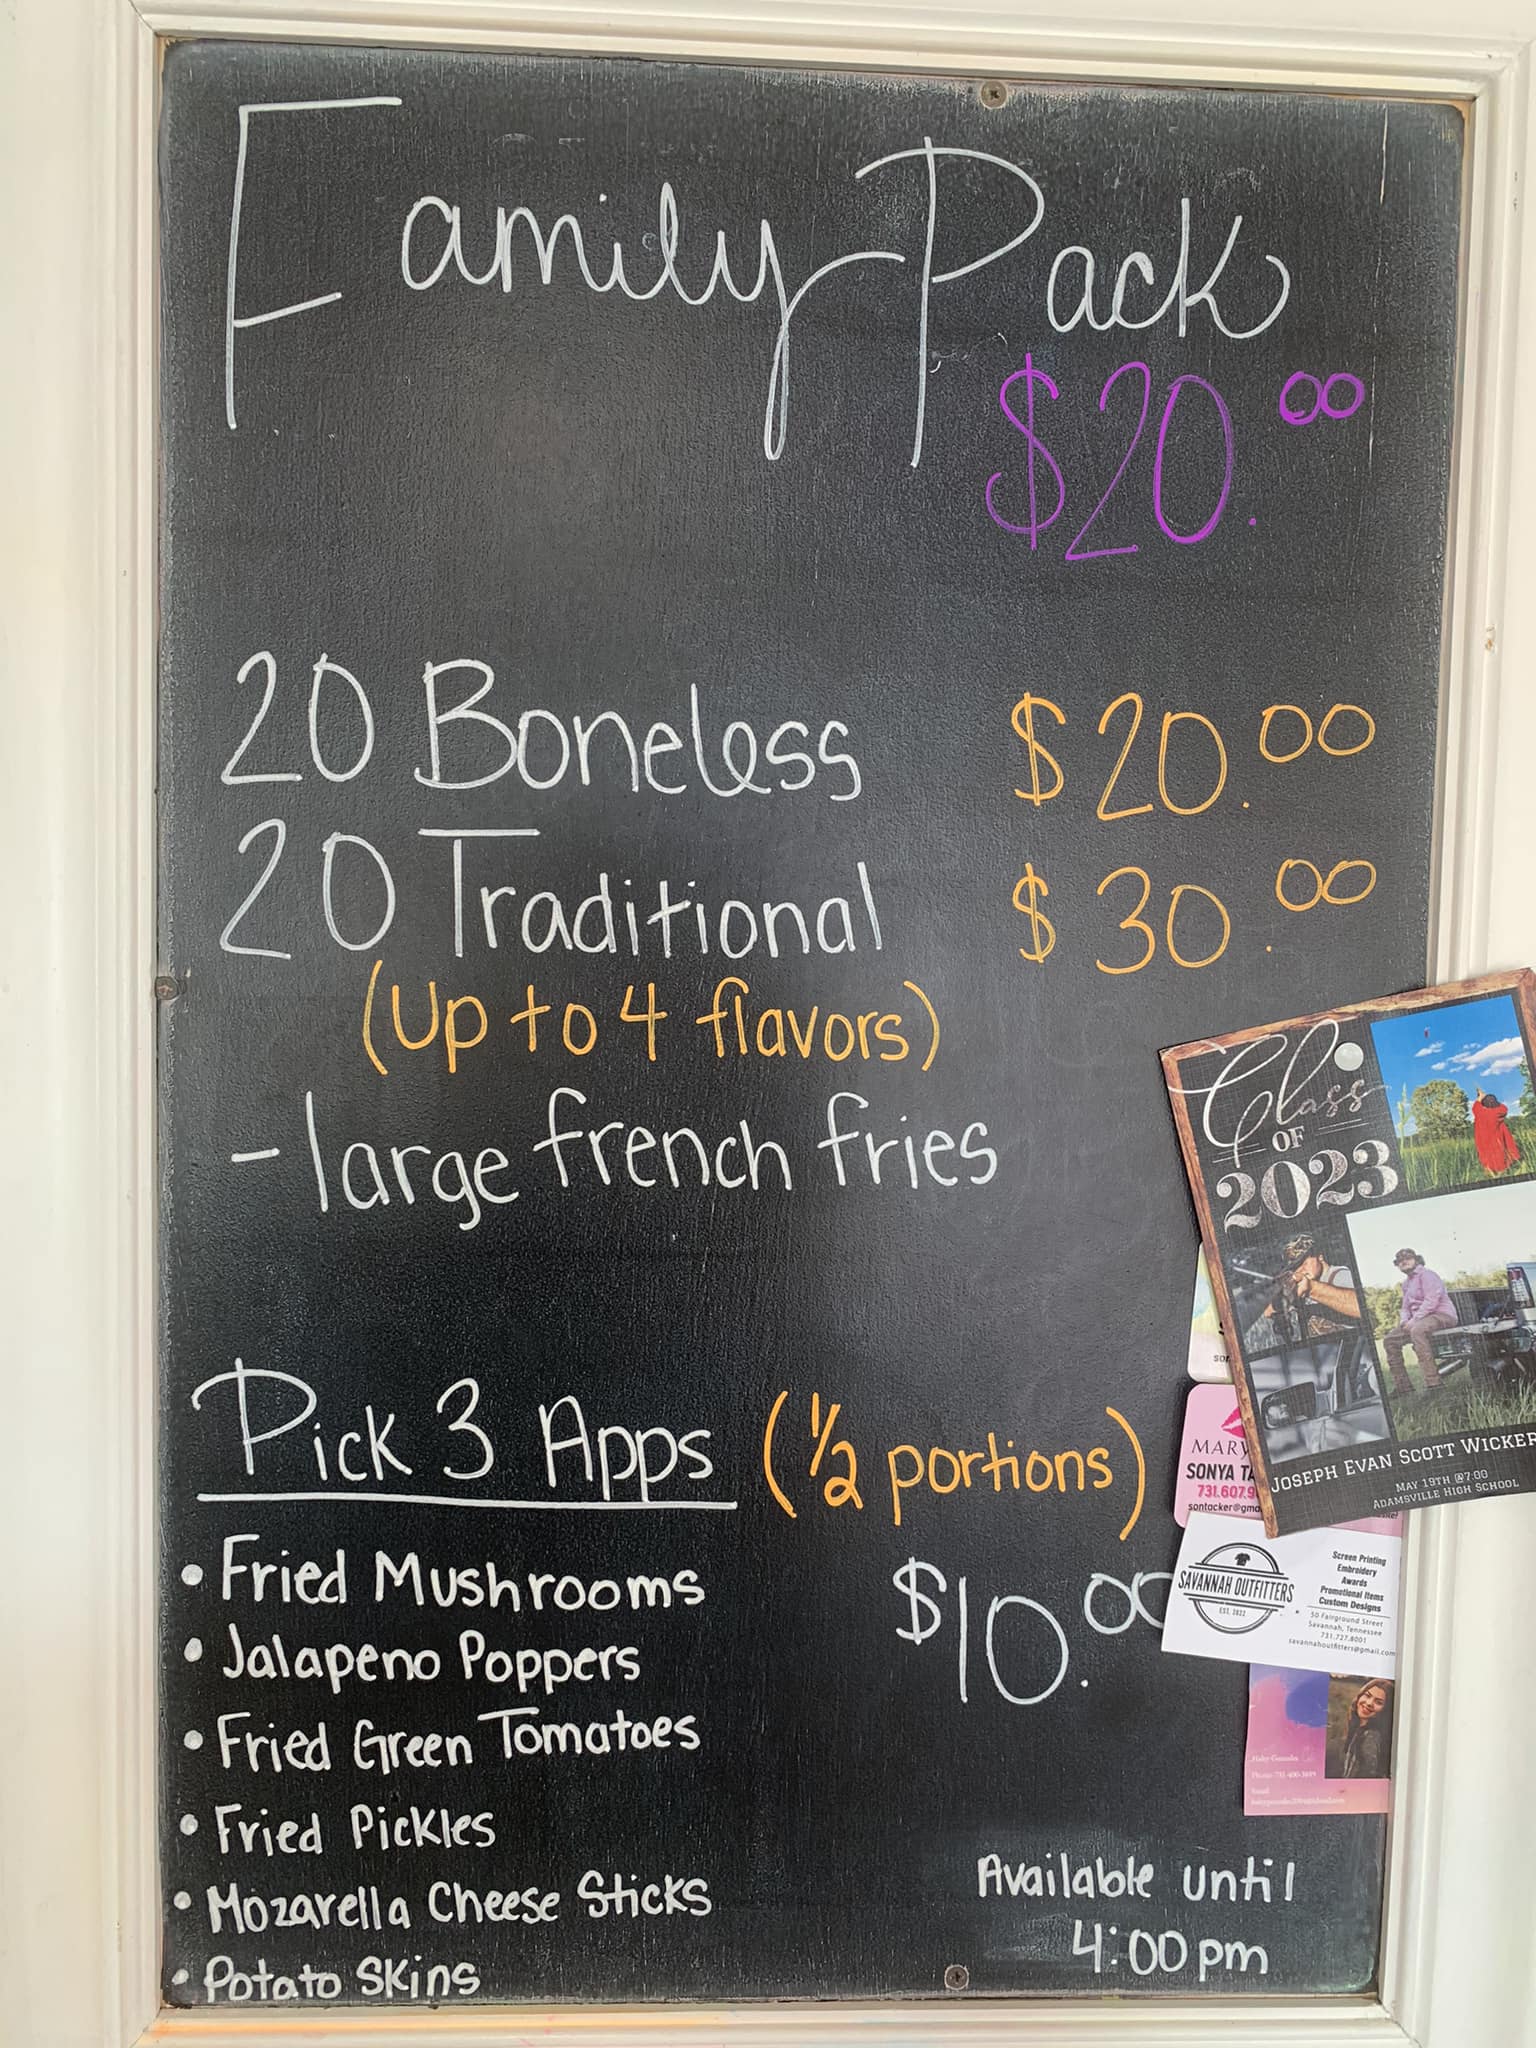 Family Pack
$20.00
20 Boneless $20.00
20 Traditional $30.00
(Up to 4 flavors)
- large french fries
Pick 3 Apps (1/2 portions)
• Fried Mushrooms $10.00
• Jalapeno Poppers
• Fried Green Tomatoes
• Fried Pickles
• Mozarella Cheese Sticks
• Potato Skins
Available until
4:00pm
Class
OF
2023
JOSEPH EVAN SCOTT WICKER
MAY 19TH @7:00
ADAMSVILLE HIGH SCHOOL
MARY
SONYA TA
731.607.9
sontacker@gma
SAVANNAH OUTFITTERS
EST. 2022
Screen Printing
Embroidery
Awards
Promotional Items
Custom Designs
50 Fairground Street
Savannah, Tennessee
731.727.8001
savannahoutfitters@gmail.com
Haley Gonzales
Email